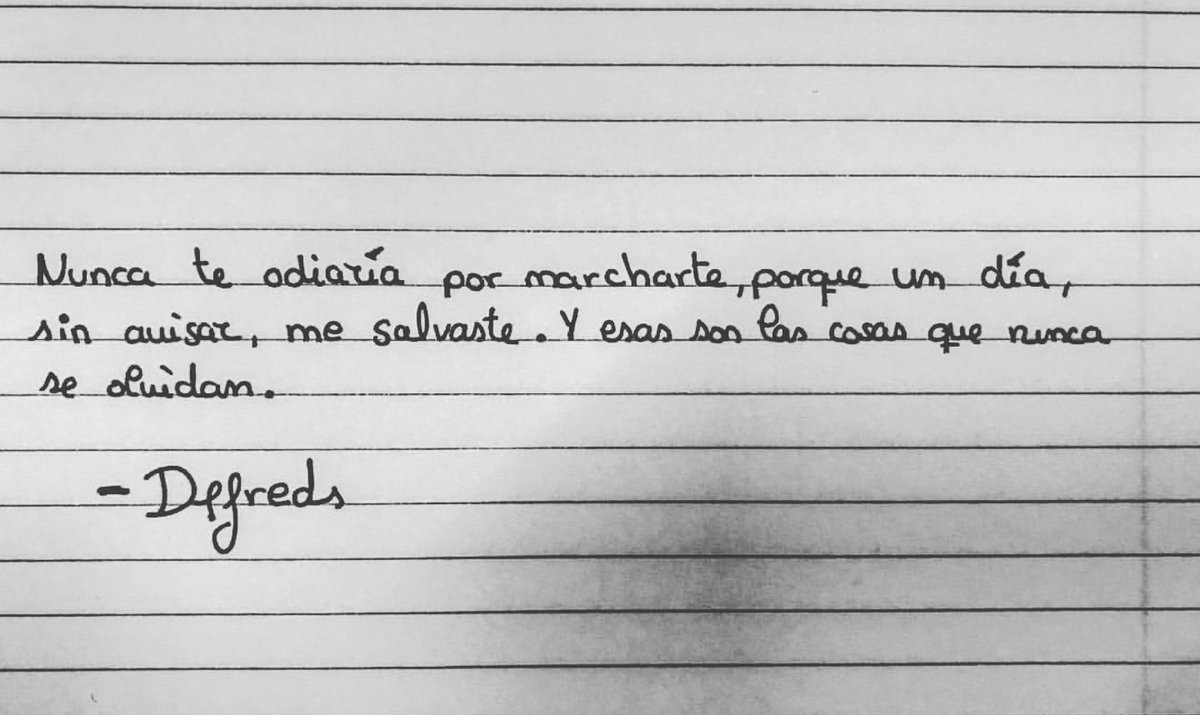 Nunca te odiaría por marcharte, porque un día,
sin avisar, me salvaste. Y esas son las cosas que nunca
se olvidan.
- Defreds